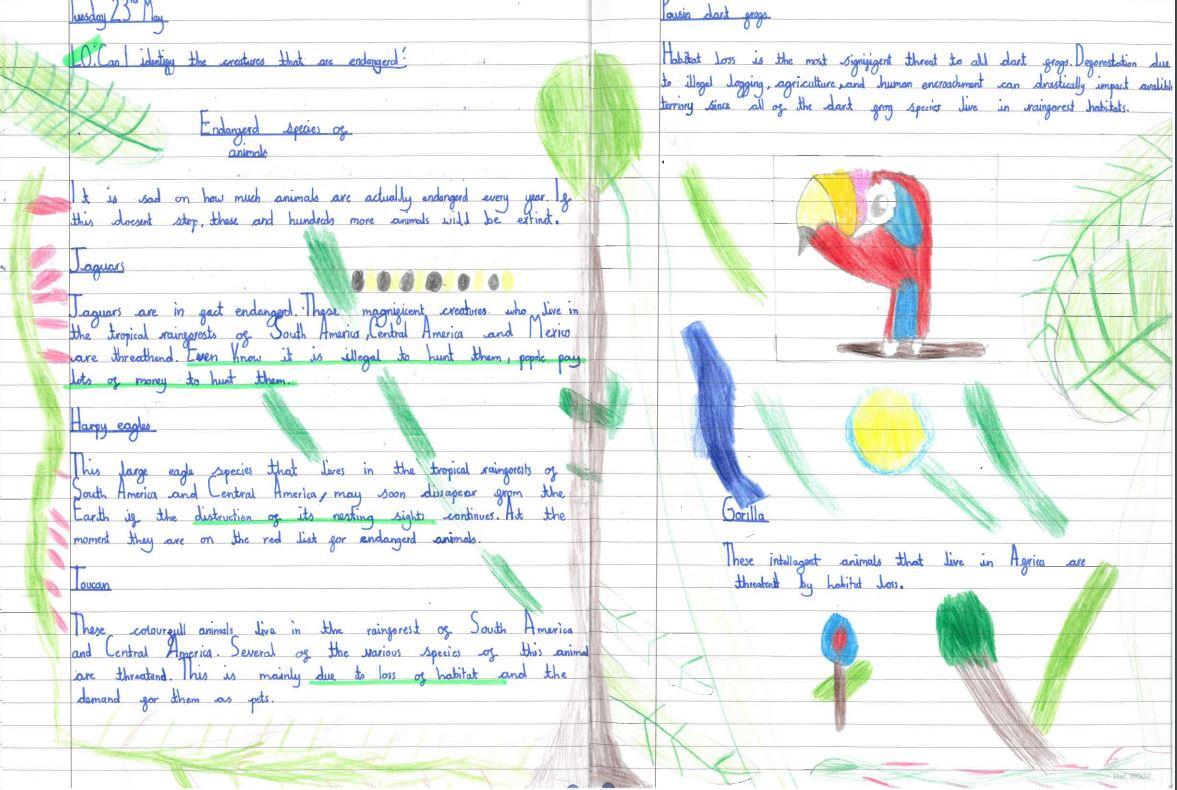 Tuesday 23rd May
LO: Can I identify the creatures that are endangerd?
Endangerd species of
animals
It is sad on how much animals are actually endangerd every year. If
this doesent stop, these and hundreds more animals will be extinct.
Jaguars
Jaguars are in fact endangerd. These magnificent creatures who live in
the tropical rainforests of South America, Central America and Mexico
are threathend. Even know it is illegal to hunt them, pepole pay
lots of money to hunt them.
Harpy eagles
This large eagle species that lives in the tropical rainforests of
South America and Central America, may soon dissapear from the
Earth if the distruction of its nesting sights continues. At the
moment they are on the red list for endangerd animals.
Toucan
These colourfull animals live in the rainforest of South America
and Central America. Several of the various species of this animal
are threatend. This is mainly due to loss of habitat and the
demand for them as pets.
Poisin dart frogs
Habitat loss is the most signifigent threat to all dart frogs. Deforestation due
to illegal logging, agriculture and human encroachment can drastically impact avalible
terriory since all of the dart frog species live in rainforest habitats.
Gorilla
These intellagent animals that live in Africa are
threatent by habitat loss.